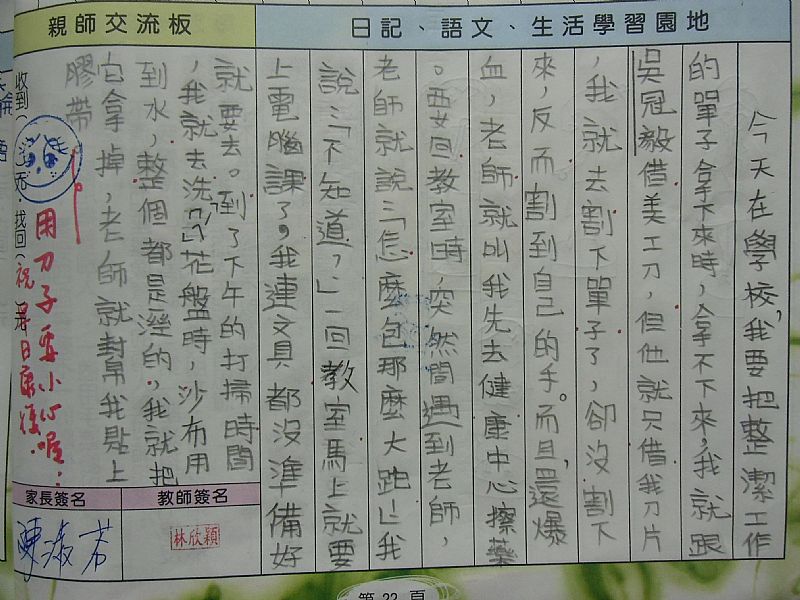 日記、語文、生活學習園地
今天在學校,我要把整潔工作
的單子拿下來時,拿不下來,我就跟
吳冠毅借美工刀,但他就只借我刀片
,我就去割下單子了,卻沒割下
來,反而割到自己的手。而且,還爆
血,老師就叫我先去健康中心擦藥
。要回教室時,突然間遇到老師,
老師就說:「怎麼包那麼大跑」我
說:「不知道,」一回教室馬上就要
上電腦課了。我連文具都沒準備好
親師交流板
就要去。到了下午的打掃時間
,我就去洗花盤時,沙布用
到水,整個都是溼的,我就把
它拿掉,老師就幫我黏上
膠帶。
用刀子要小心喔!
祝早日康復.
收到
找回
教師簽名
林欣穎
家長簽名
第 22 頁